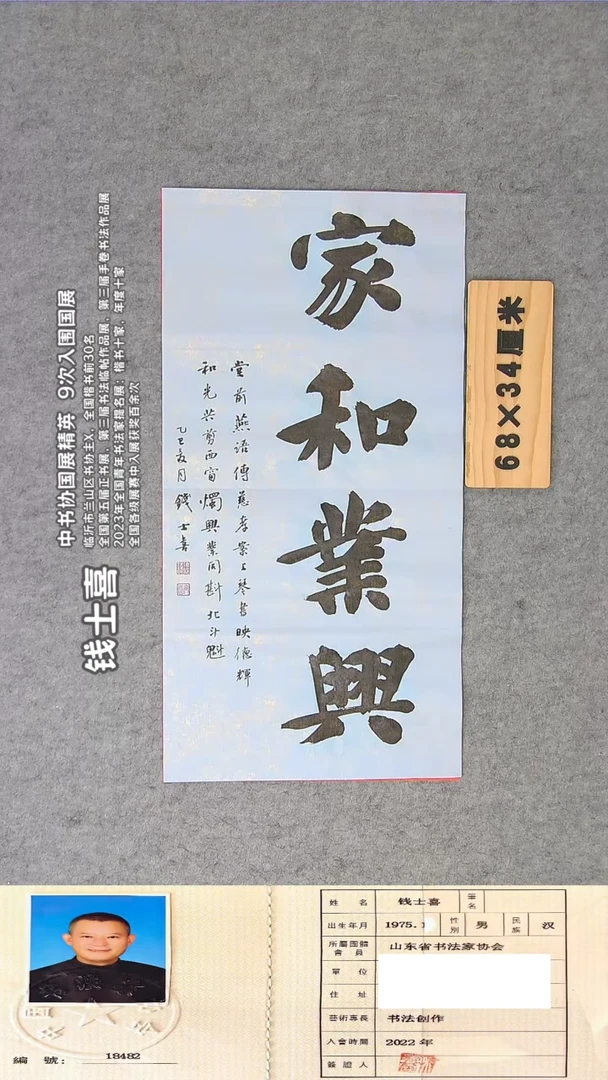 家和業興
堂前燕語傳慈孝案上琴書映德輝
和光共剪西窗燭興業同斟北斗魁
乙巳夏月錢士喜
68×34厘米
钱士喜
中书协国展精英 9次入围国展
临沂市兰山区书协主X，全国楷书前30名
全国第五届正书展、第三届书法临帖作品展、第三届手卷书法作品展
2023年全国青年书法家提名展；楷书十家，年度十家
全国各级展赛中入展获奖百余次
編 號： 18482
姓 名 钱士喜 筆名
出生年月 1975.1 性别 男 民族 汉
所屬團體會員 山东省书法家协会
單 位
住 址
藝術專長 书法创作
入會時間 2022 年
簽證人